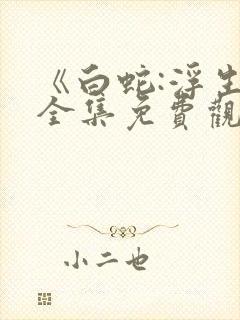 《白蛇:浮生
全集免費觀
小二也